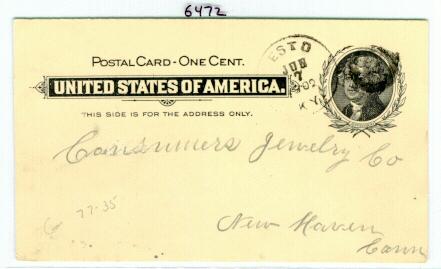 6472
POSTAL CARD - ONE CENT.
UNITED STATES OF AMERICA.
THIS SIDE IS FOR THE ADDRESS ONLY.
ESTO
JUN
7
KY
Consumers Jewelry Co
77-35
New Haven
Conn